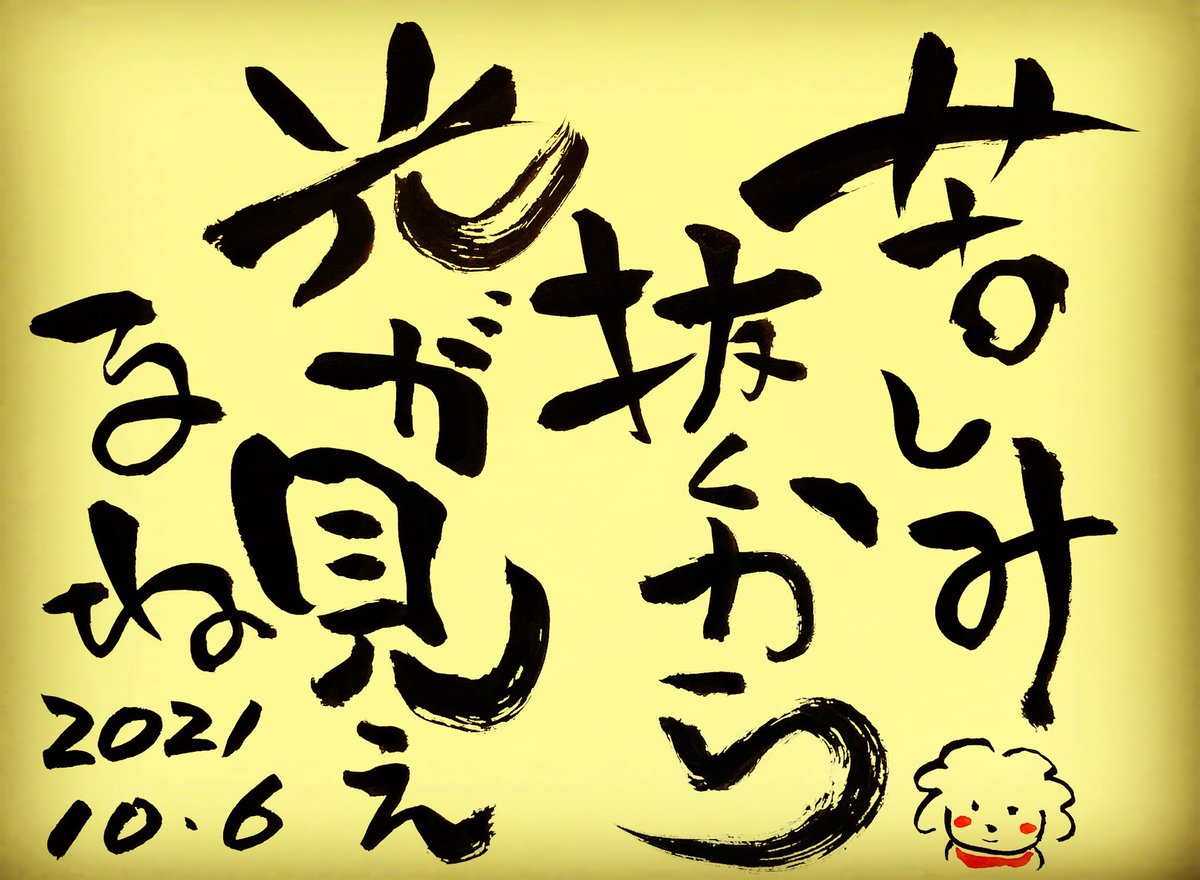 苦しみ
抜くから
光が見え
るね
2021
10.6